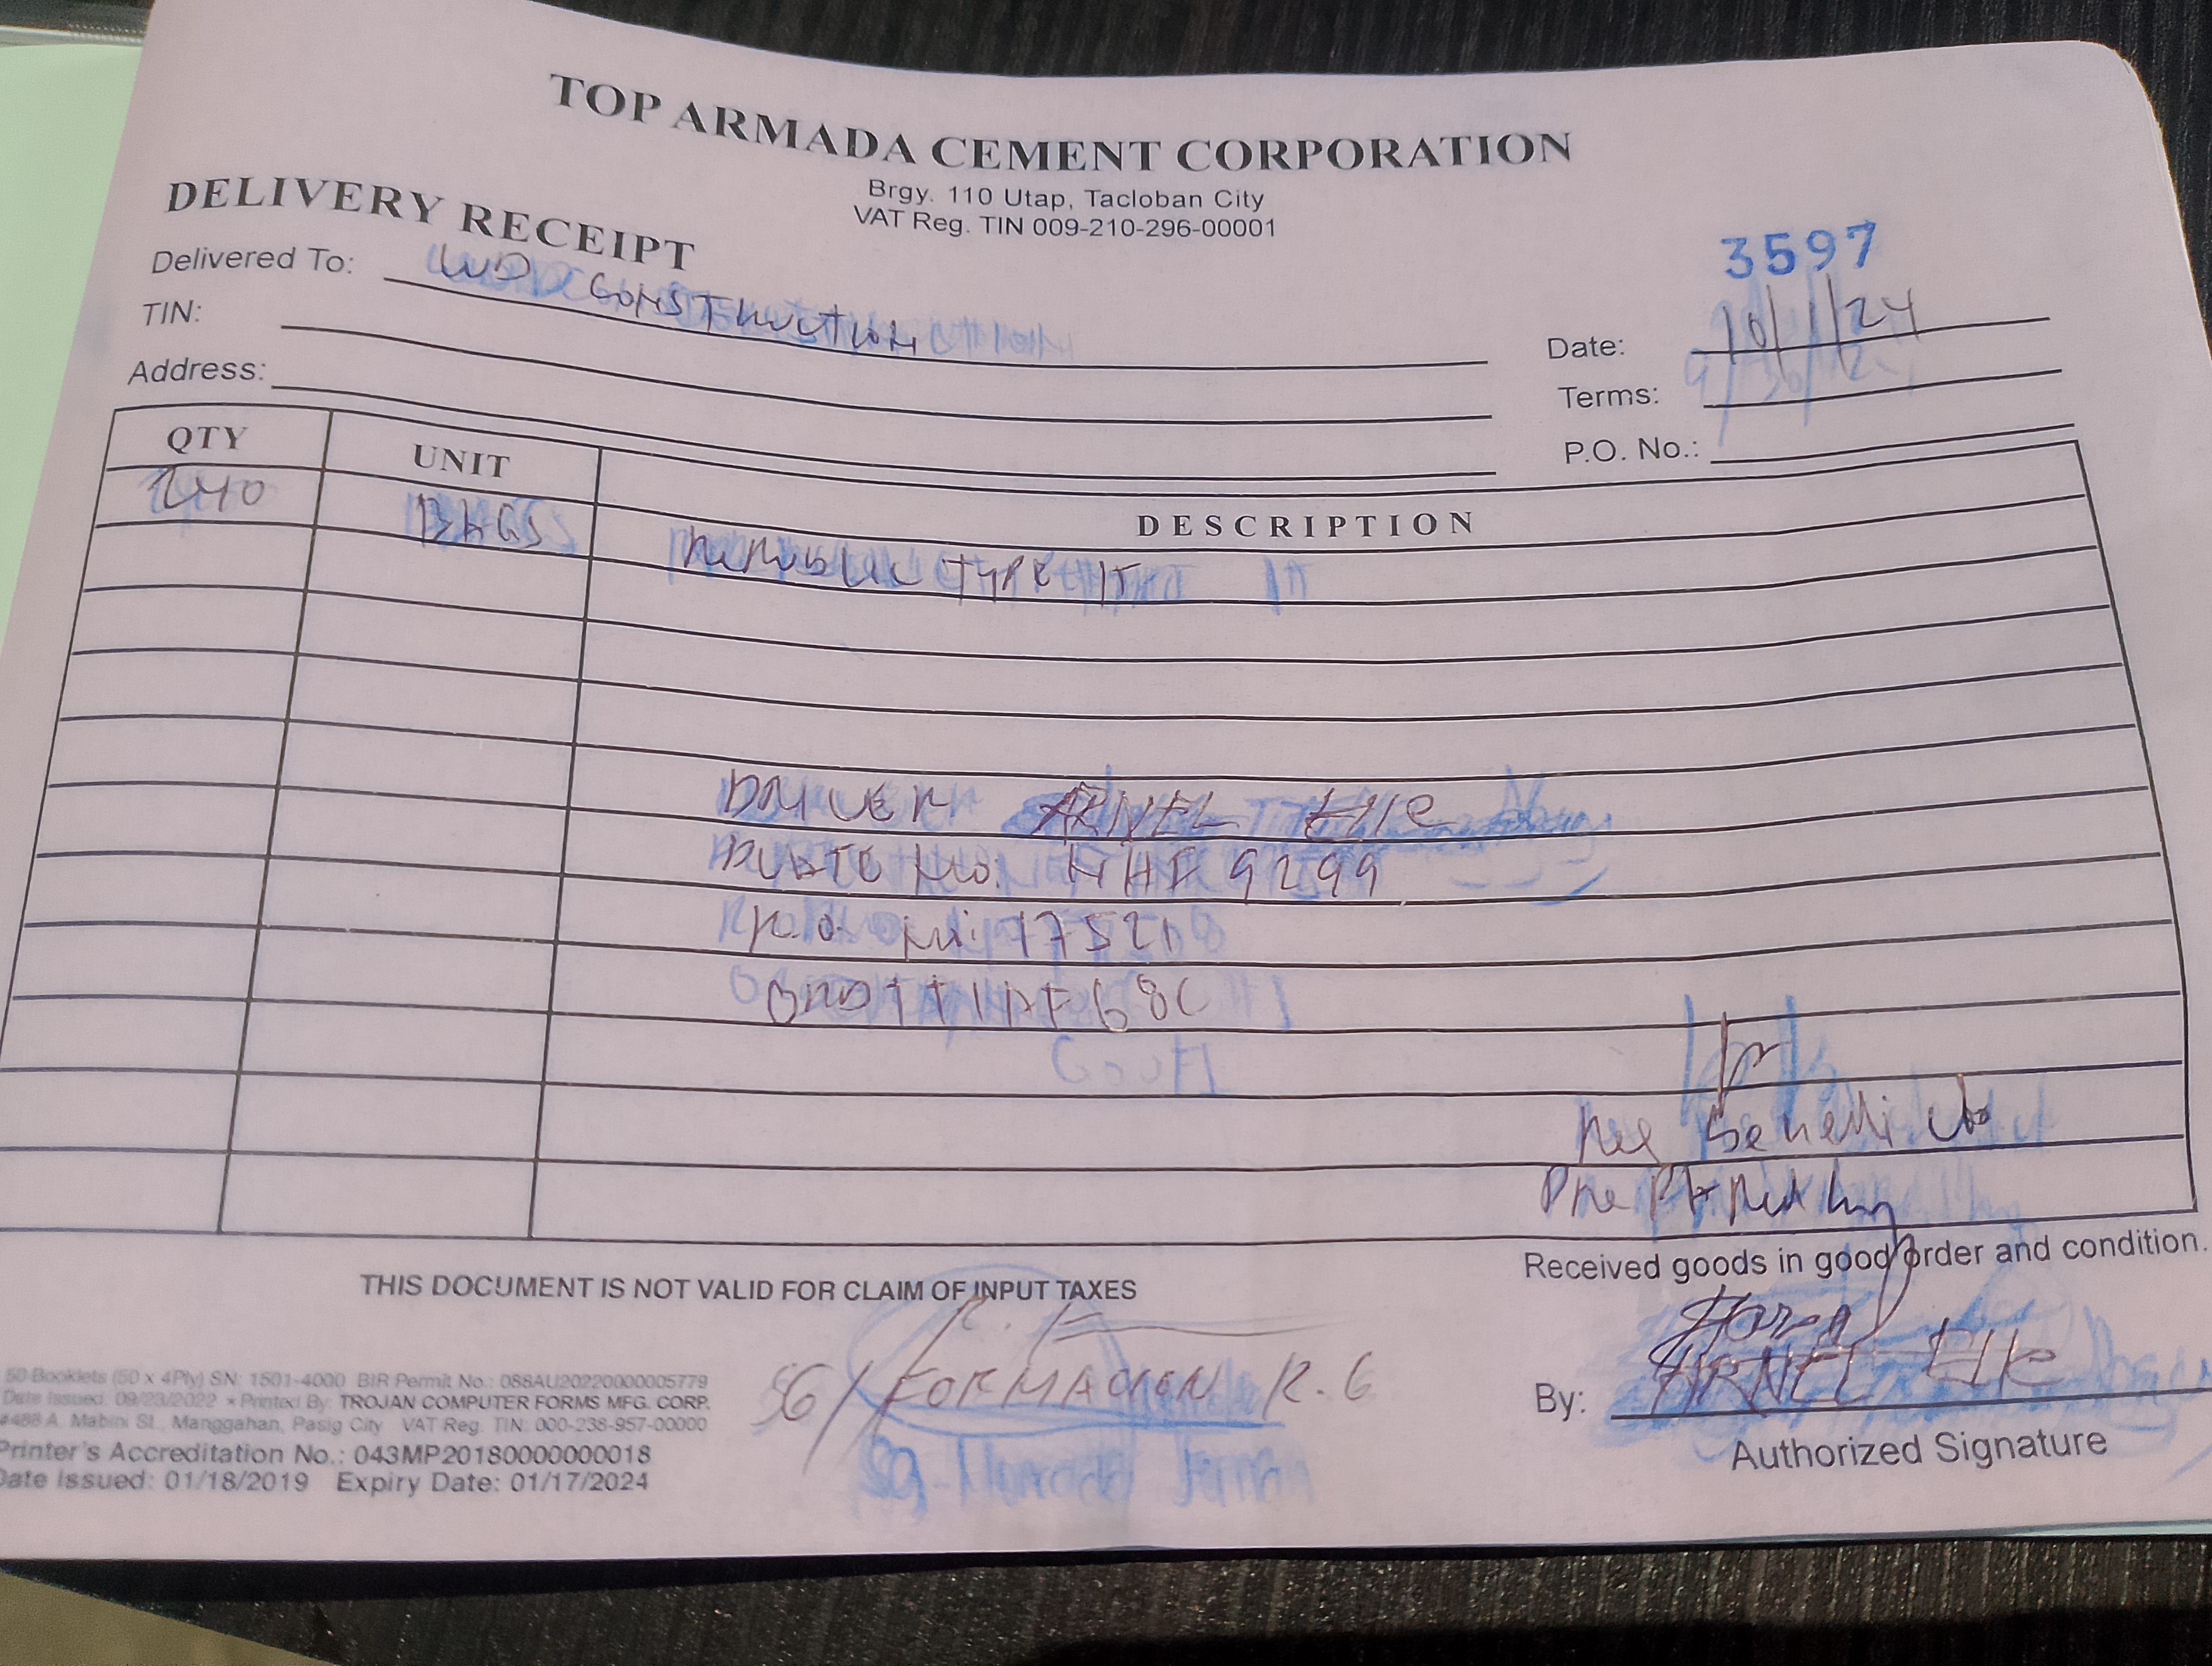 TOP ARMADA CEMENT CORPORATION
Brgy. 110 Utap, Tacloban City
VAT Reg. TIN 009-210-296-00001
DELIVERY RECEIPT
3597
Delivered To: WD CONSTRUCTION
TIN:
Address:
Date: 10/1/24
Terms:
P.O. No.:
QTY UNIT DESCRIPTION
240 BAGS REPUBLIC TYPE 1T
DRIVER ARNEL
PLATE NO. NHF 9299
P.O. NO. 17521
Prepared by
THIS DOCUMENT IS NOT VALID FOR CLAIM OF INPUT TAXES
Received goods in good order and condition.
SG/FORMACION R.G
By: ARNEL
Authorized Signature
50 Booklets (50 x 4Ply) SN: 1501-4000 BIR Permit No.: 088AU20220000005779
Date Issued: 09/23/2022 * Printed By: TROJAN COMPUTER FORMS MFG. CORP.
#488 A. Mabini St., Manggahan, Pasig City VAT Reg. TIN: 000-238-957-00000
Printer's Accreditation No.: 043MP20180000000018
Date Issued: 01/18/2019 Expiry Date: 01/17/2024